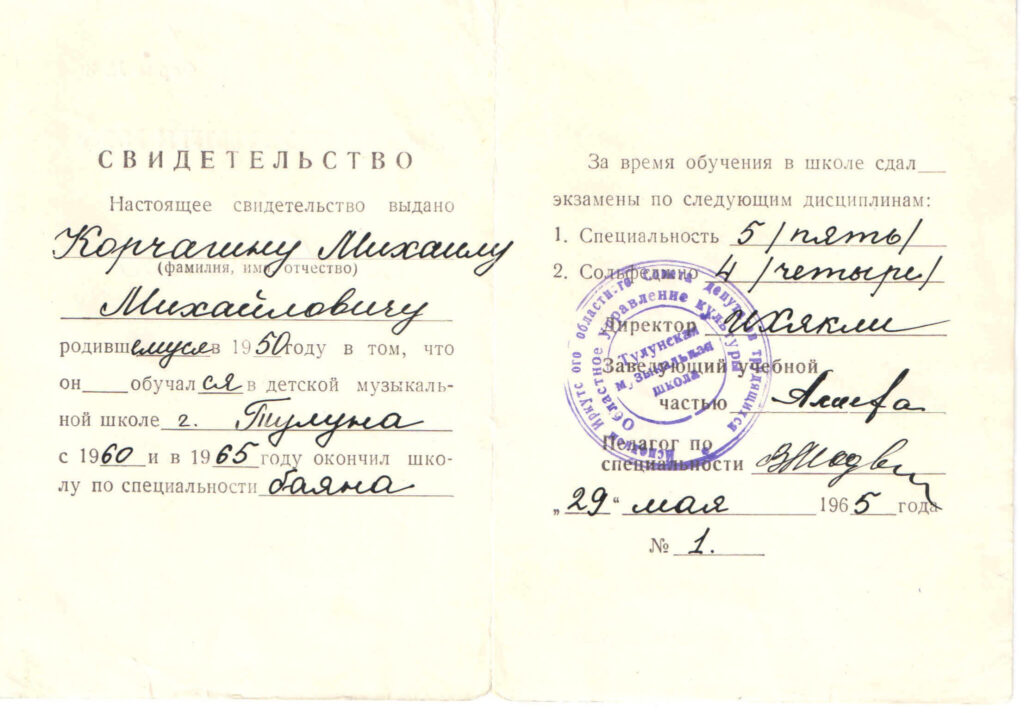 СВИДЕТЕЛЬСТВО
Настоящее свидетельство выдано
Корчагину Михаилу
(фамилия, имя, отчество)
Михайловичу
родившемуся в 1950 году в том, что
он обучался в детской музыкаль-
ной школе г. Тулуна
с 1960 и в 1965 году окончил шко-
лу по специальности баяна
За время обучения в школе сдал
экзамены по следующим дисциплинам:
1. Специальность 5 /пять/
2. Сольфеджио 4 /четыре/
Директор
Заведующий учебной
частью
Педагог по
специальности
„29“ мая 1965 года
№ 1.
Исполком Иркутс ого областн-го Совета депутатов трудящихся
Областное управление культуры
Тулунская
м,зыкальная
школа